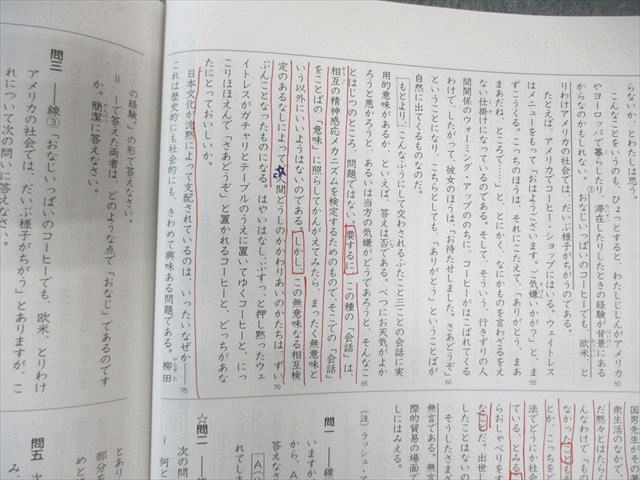 らないか、とわたしは思う。
こんなことをいうのも、ひょっとすると、わたしじしんがアメリカ
50
やヨーロッパで暮らしたり、滞在したりしたときの経験が背景にある
からなのかもしれない。おなじいっぱいのコーヒーでも、欧米、と
③
りわけアメリカの社会では、だいぶ様子がちがうのである。
たとえば、アメリカでコーヒー・ショップにはいる。ウェイトレス
はメニューをもって「おはようございます。ご気嫌いかが？」と、ま
55
ずこうくる。こっちのほうは、それにこたえて、「ありがとう、まあ
まあだね、ところで……」と、とにかく、なにかものを言わざるをえ
ない仕掛けになっているのである。そして、そういう、行きずりの人
間関係のウォーミング・アップののちに、コーヒーがはこばれてくる
わけで、したがって、彼女のほうは「お待たせしました。さあどうぞ」
60
ということになり、こちらとしても、「ありがとう」ということばが
自然に出てくるものなのだ。
もとより、こんなふうにして交わされるふたこと三ことの会話に実
用的意味があるか、といえば、答えは否である。べつにお天気がよか
ろうと悪かろうと、あるいは当方の気嫌がどうであろうと、そんなこ
65
とはじつのところ、問題ではない。要するに、この種の「会話」は、
相互の精神感応メカニズムを検定するためのもので、そこでの「会話」
をことばの「意味」に照らしてかんがえてみたら、まったく無意味と
いう以外にいいようはないのである。しかし、この無意味なる相互検
定のあるなしによって、人間どうしのかかわりあいのかたちは、ずい
70
ぶんことなったものになる。はやいはなし、ぶすっと押し黙ったウェ
イトレスがガチャリとテーブルのうえに置いてゆくコーヒーと、にっ
こりほほえんで「さあどうぞ」と置かれるコーヒーと、どっちがあな
たにとっておいしいか。
日本文化が沈黙によって支配されているのは、いったいなぜか――
75
これは歴史的にも社会的にも、きわめて興味ある問題である。柳田
の経験。」の形で答えなさい。
ⅱ ⅰで答えた両者は、どのような点で「おなじ」であるのです
か。簡潔に答えなさい。
問三 ――線③「おなじいっぱいのコーヒーでも、欧米、とりわけ
アメリカの社会では、だいぶ様子がちがう」とありますが、こ
れについて次の問いに答えなさい。
国男先生がその
衆生活のなかで
だ黙々とはたら
んなわけで、も
なかったことも
とか、こっちをど
法でどうにか社会
ている、とみる
らおしゃべりをす
なしだ、出世し
したことはない
そうしたさまざ
無言である。無言
際的貿易の場面で
しにはみえる。
(注) ラッシュ・ア
問一 ――線
いますか。
から、
答えなさ
れてしま
A
☆問二 ――線
次の問
ⅰ 何と
とあり
部分を
めと
問五 次
み、